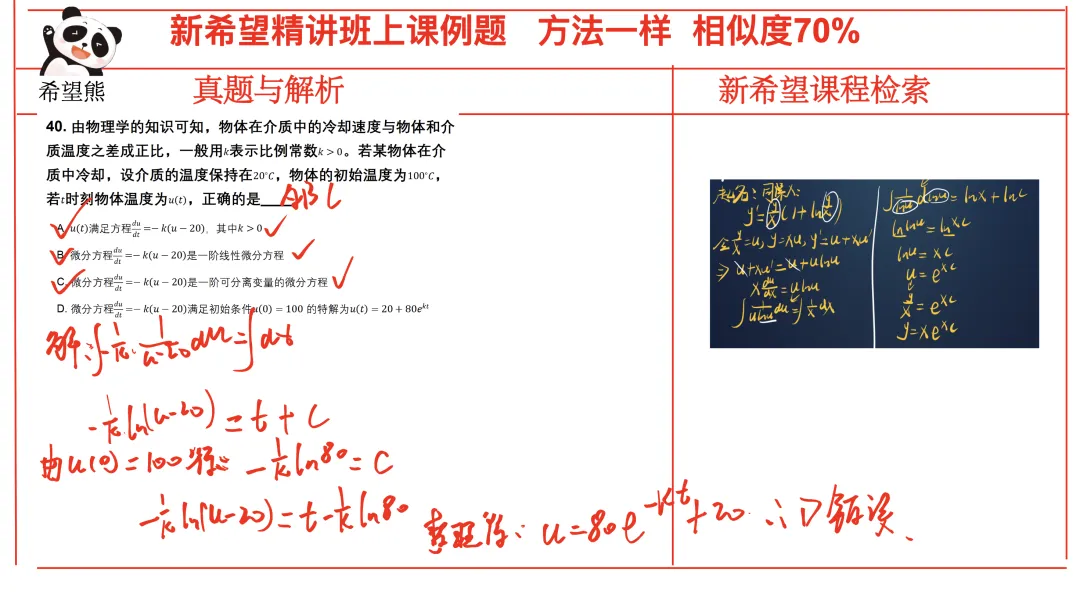 新希望精讲班上课例题 方法一样 相似度70%
希望熊
真题与解析
新希望课程检索
40. 由物理学的知识可知，物体在介质中的冷却速度与物体和介
质温度之差成正比，一般用k表示比例常数k＞0。若某物体在介
质中冷却，设介质的温度保持在20°C，物体的初始温度为100°C，
若t时刻物体温度为u(t)，正确的是____ABC
A. u(t)满足方程du/dt=−k(u−20)，其中k＞0
B. 微分方程du/dt=−k(u−20)是一阶线性微分方程
C. 微分方程du/dt=−k(u−20)是一阶可分离变量的微分方程
D. 微分方程du/dt=−k(u−20)满足初始条件u(0)=100 的特解为u(t)=20+80e^{kt}
解：∫-1/k·1/(u-20)du=∫dt
-1/k ln(u-20)=t+C
由u(0)=100得：-1/k ln80=C
-1/k ln(u-20)=t-1/k ln80
整理得：u=80e^{-kt}+20 ∴D错误.
y'=y/x(1+ln y/x)
令y/x=u, y=xu, y'=u+xu'
⇒u+xu'=u+ulnu
x du/dx=ulnu
∫1/(ulnu)du=∫1/x dx
∫1/lnu dlnu=lnx+lnC
lnlnu=lnxC
lnu=xC
u=e^{xC}
y/x=e^{xC}
y=xe^{xC}